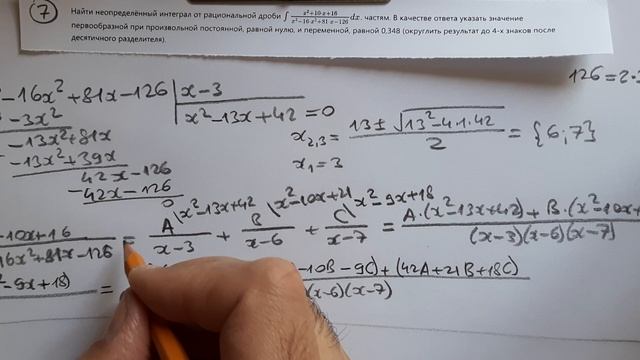 7
Найти неопределённый интеграл от рациональной дроби ∫ x²+10·x+16 / x³-16·x²+81·x-126 dx. частям. В качестве ответа указать значение
первообразной при произвольной постоянной, равной нулю, и переменной, равной 0,348 (округлить результат до 4-х знаков после
десятичного разделителя).
126=2·3
-16x²+81x-126 | x-3
-3x² x²-13x+42=0
-13x²+81x
-13x²+39x
42x-126
-42x-126
0
x₂,₃= 13±√13²-4·1·42 / 2 = {6;7}
x₁=3
-10x+16 / 16x²+81x-126 = A\x²-13x+42 / x-3 + B\x²-10x+21 / x-6 + C\x²-9x+18 / x-7 = A·(x²-13x+42)+B·(x²-10x+ / (x-3)(x-6)(x-7)
-9x+18) = -10B-9C)+(42A+21B+18C) / (x-6)(x-7)